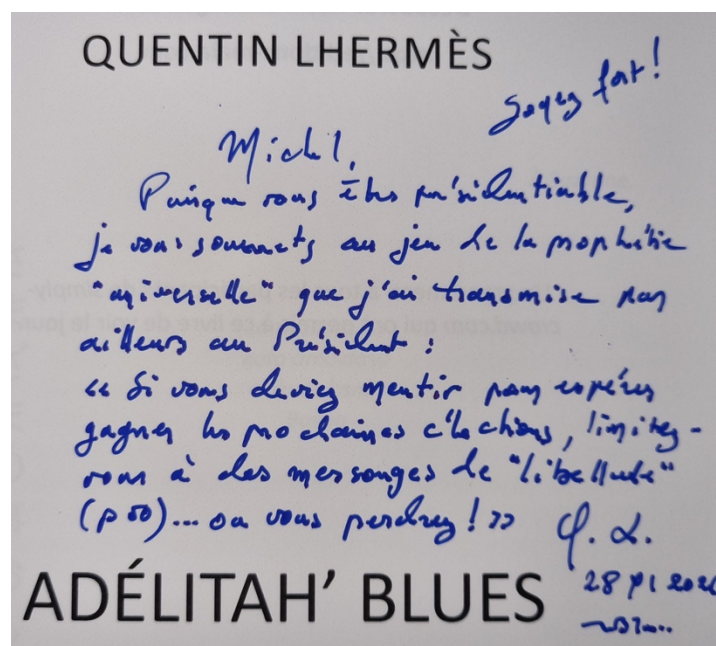 QUENTIN LHERMÈS
Soyez fort!
Michel,
Puisque vous êtes présidentiable,
je vous soumets au jeu de la prophétie
"universelle" que j'ai transmise par
ailleurs au Président :
« Si vous deviez mentir pour espérer
gagner les prochaines élections, limitez-
vous à des mensonges de "libellude"
(p 50)... ou vous perdrez ! »
Q. L.
ADÉLITAH' BLUES
28